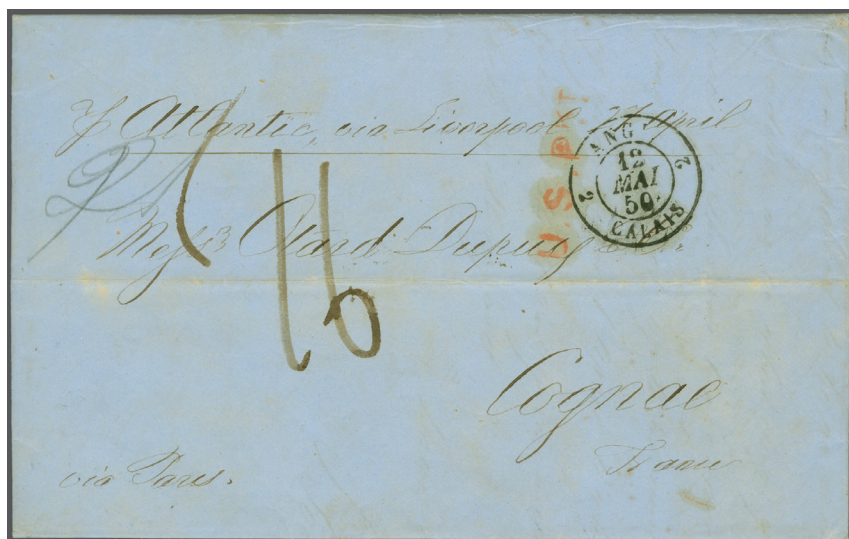 pr Atlantic, via Liverpool 27 April
U.S. PKT
2 ANG. 2
12
MAI
50
CALAIS
21
16
Messrs Otard Dupuy & Co
Cognac
France
via Paris.